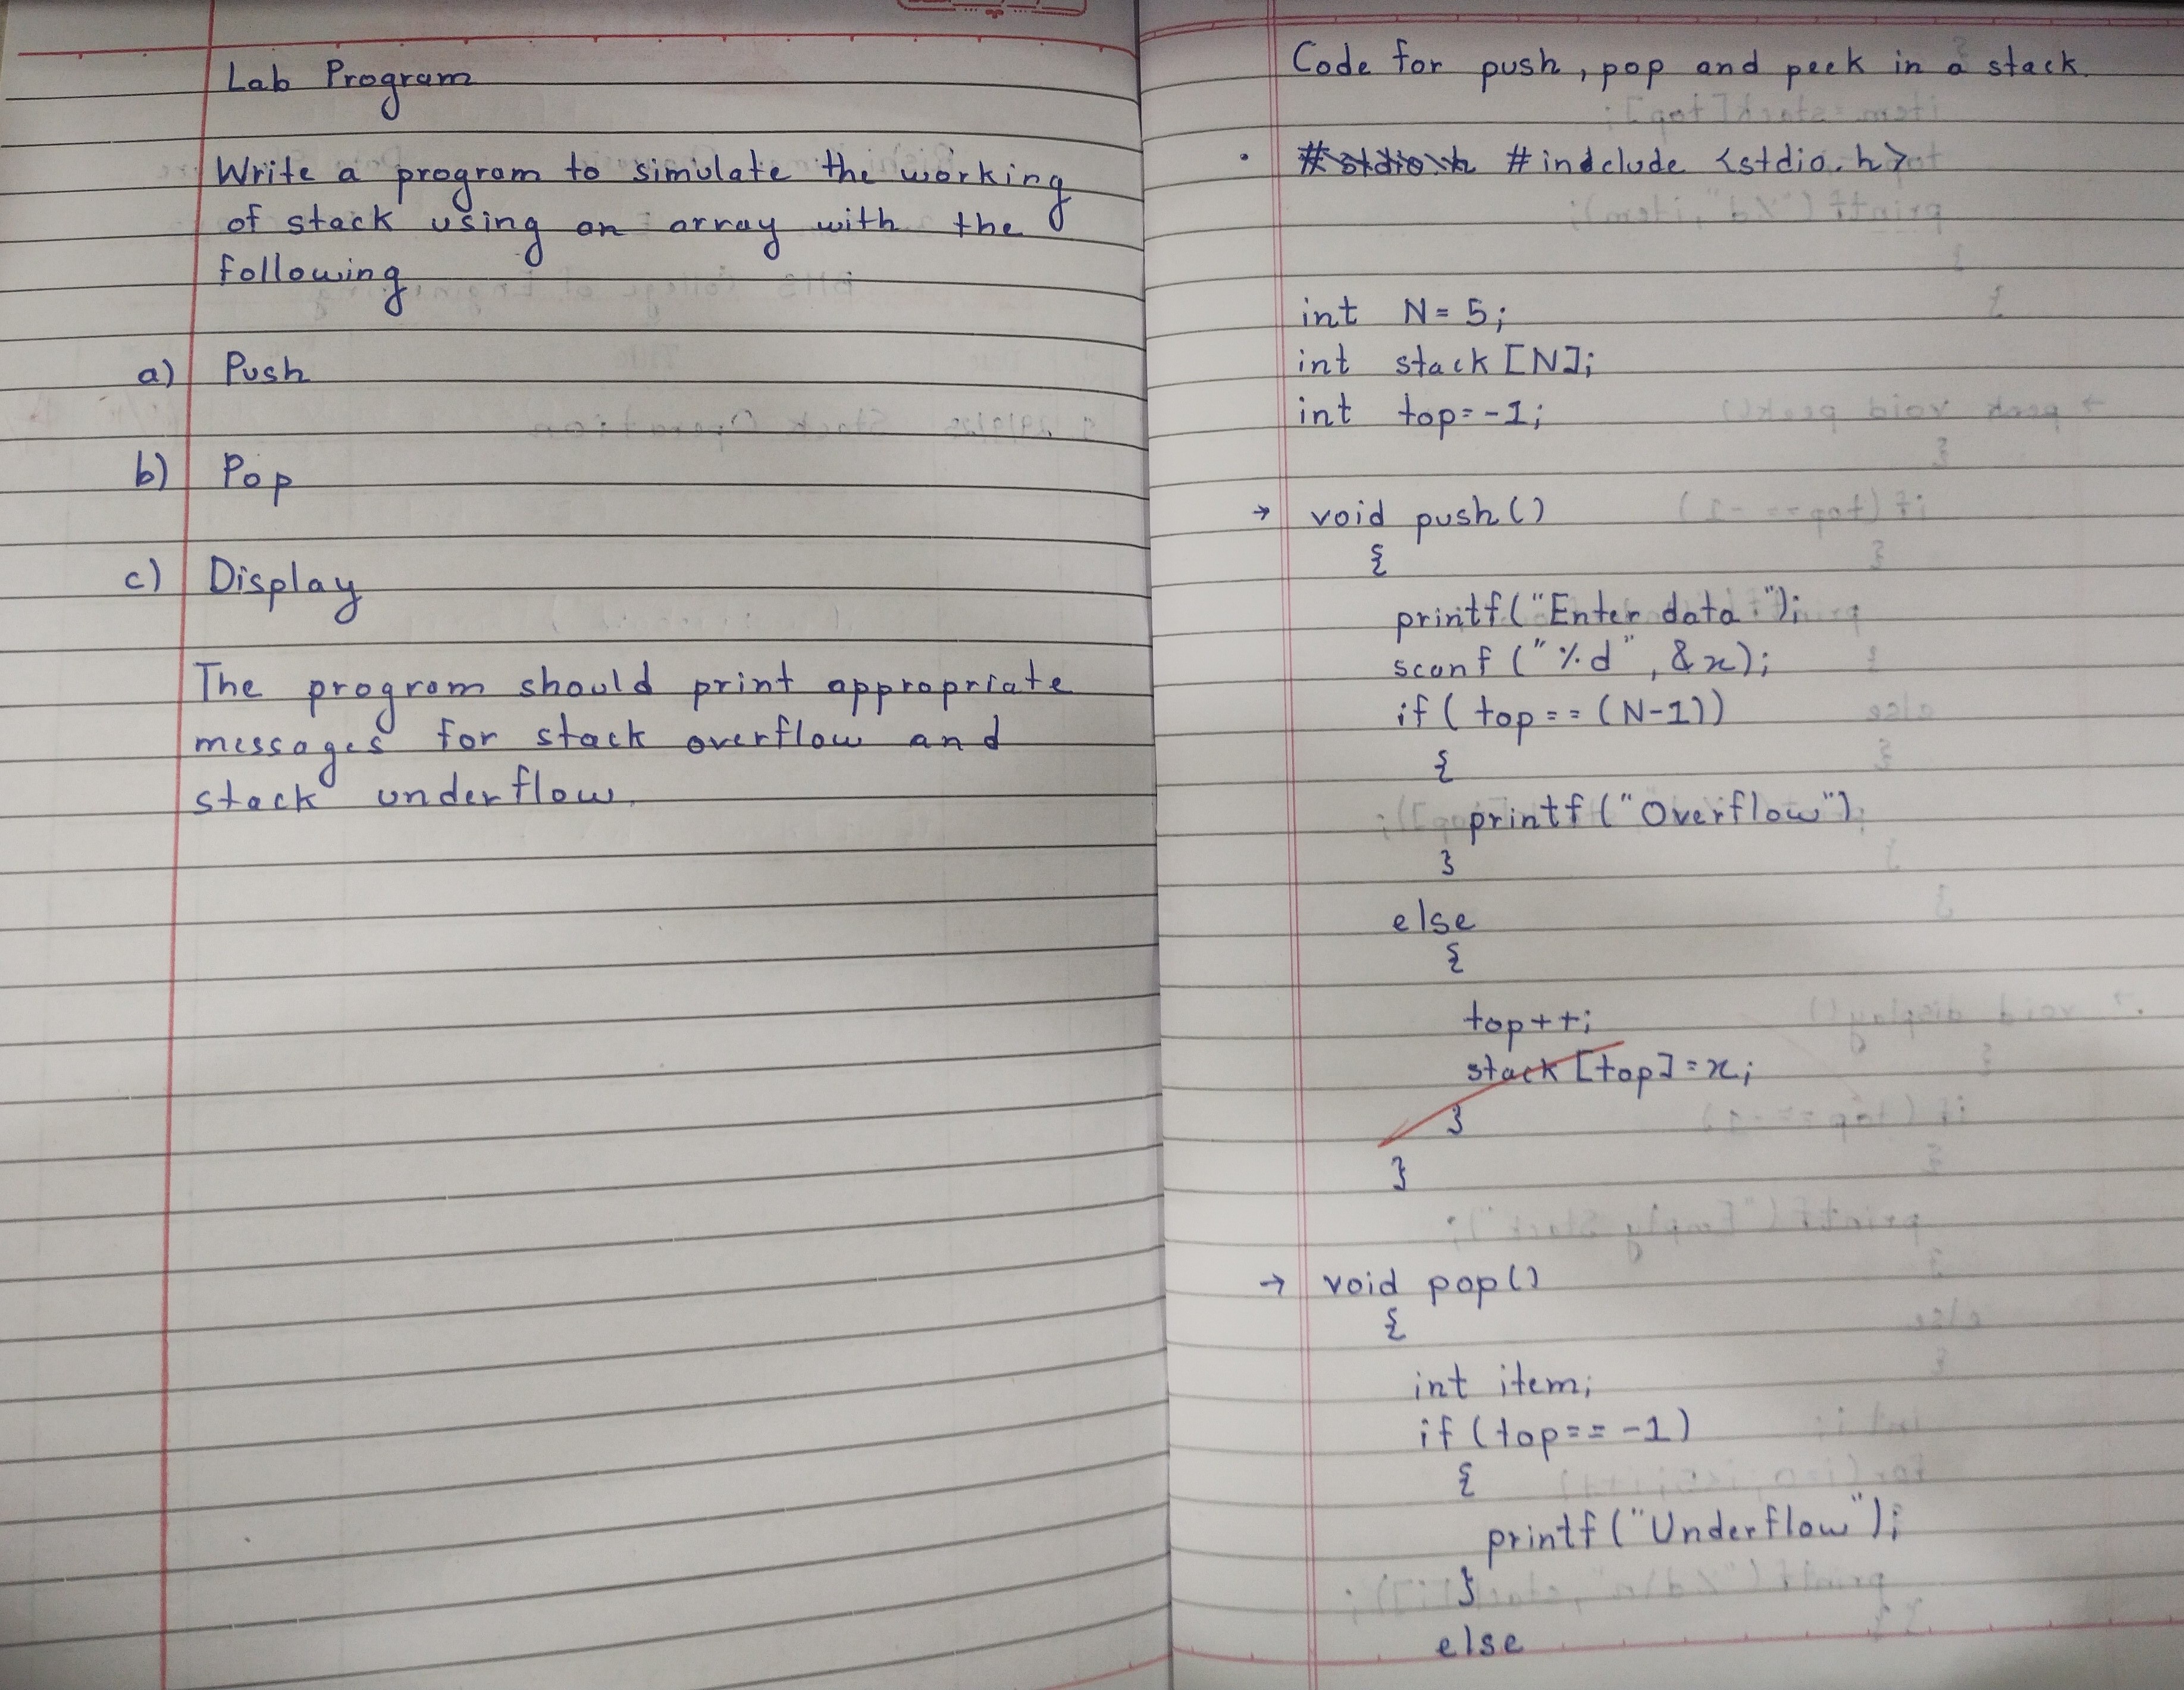 Lab Program
Write a program to simulate the working
of stack using an array with the
following
a) Push
b) Pop
c) Display
The program should print appropriate
messages for stack overflow and
stack underflow.
Code for push, pop and peek in a stack.
#indclude <stdio.h>
int N = 5;
int stack [N];
int top = -1;
→ void push()
{
printf("Enter data:");
scanf ("%d", &x);
if( top == (N-1))
{
printf("Overflow");
}
else
{
top++;
stack [top] = x;
}
}
→ void pop()
{
int item;
if (top == -1)
{
printf("Underflow");
}
else